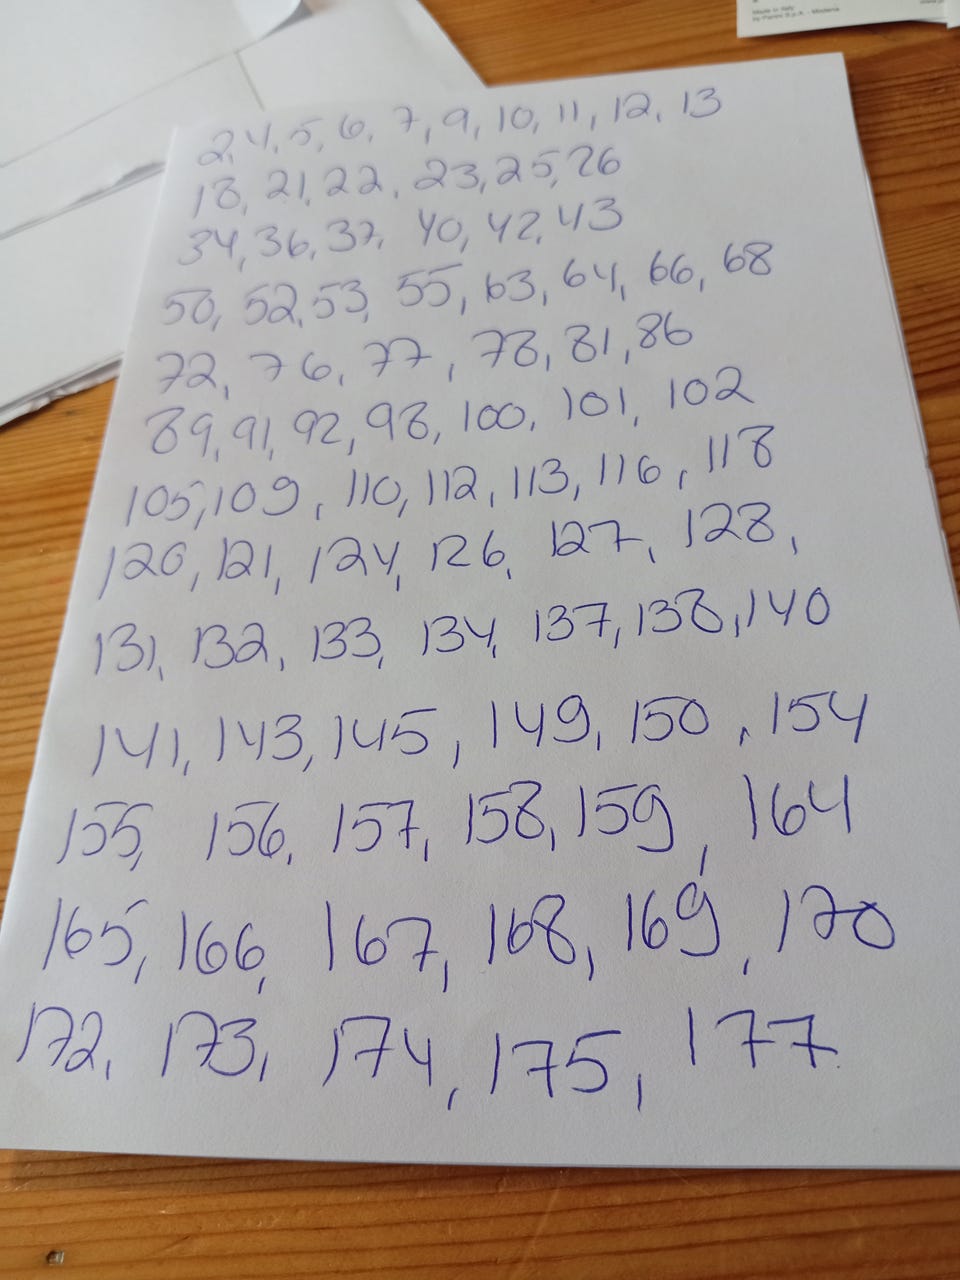 Made in Italy
by Panini S.p.A. - Modena
2, 4, 5, 6, 7, 9, 10, 11, 12, 13
18, 21, 22, 23, 25, 26
34, 36, 37, 40, 42, 43
50, 52, 53, 55, 63, 64, 66, 68
72, 76, 77, 78, 81, 86
89, 91, 92, 98, 100, 101, 102
105, 109, 110, 112, 113, 116, 118
120, 121, 124, 126, 127, 128,
131, 132, 133, 134, 137, 138, 140
141, 143, 145, 149, 150, 154
155, 156, 157, 158, 159, 164
165, 166, 167, 168, 169, 170
172, 173, 174, 175, 177